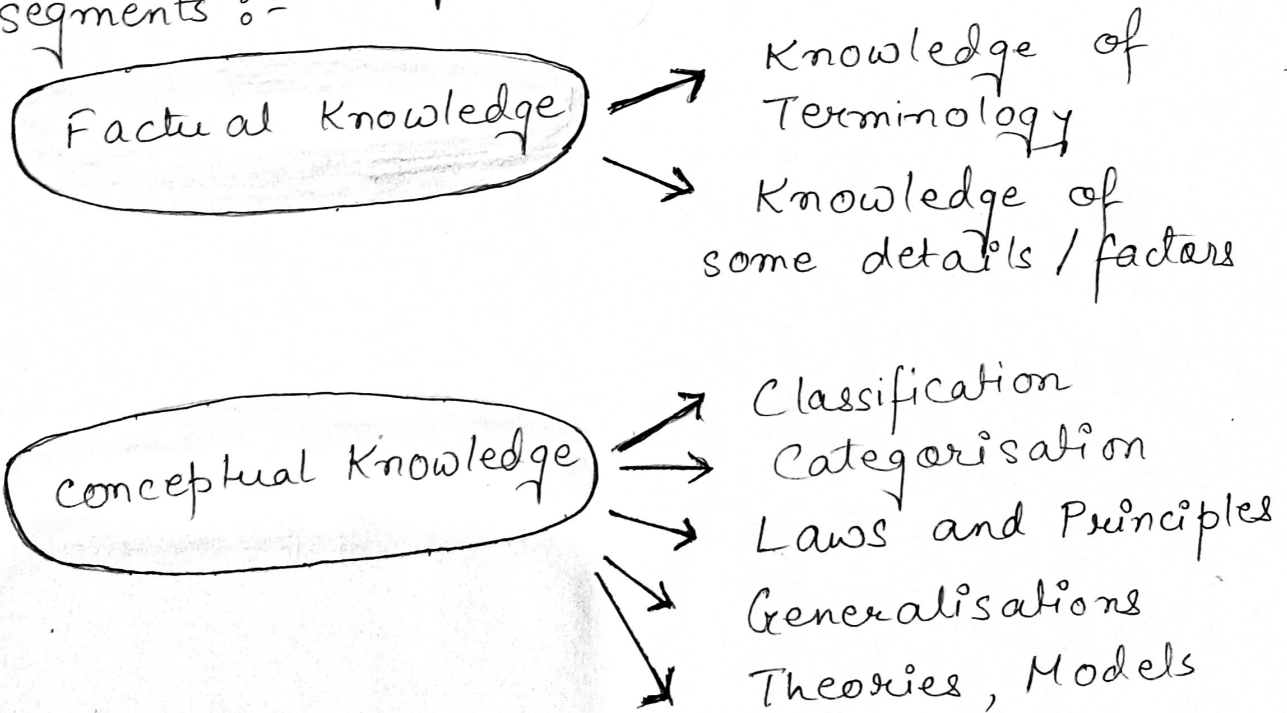 segments :-
Factual Knowledge
Knowledge of
Terminology
Knowledge of
some details / factors
Conceptual Knowledge
Classification
Categorisation
Laws and Principles
Generalisations
Theories, Models